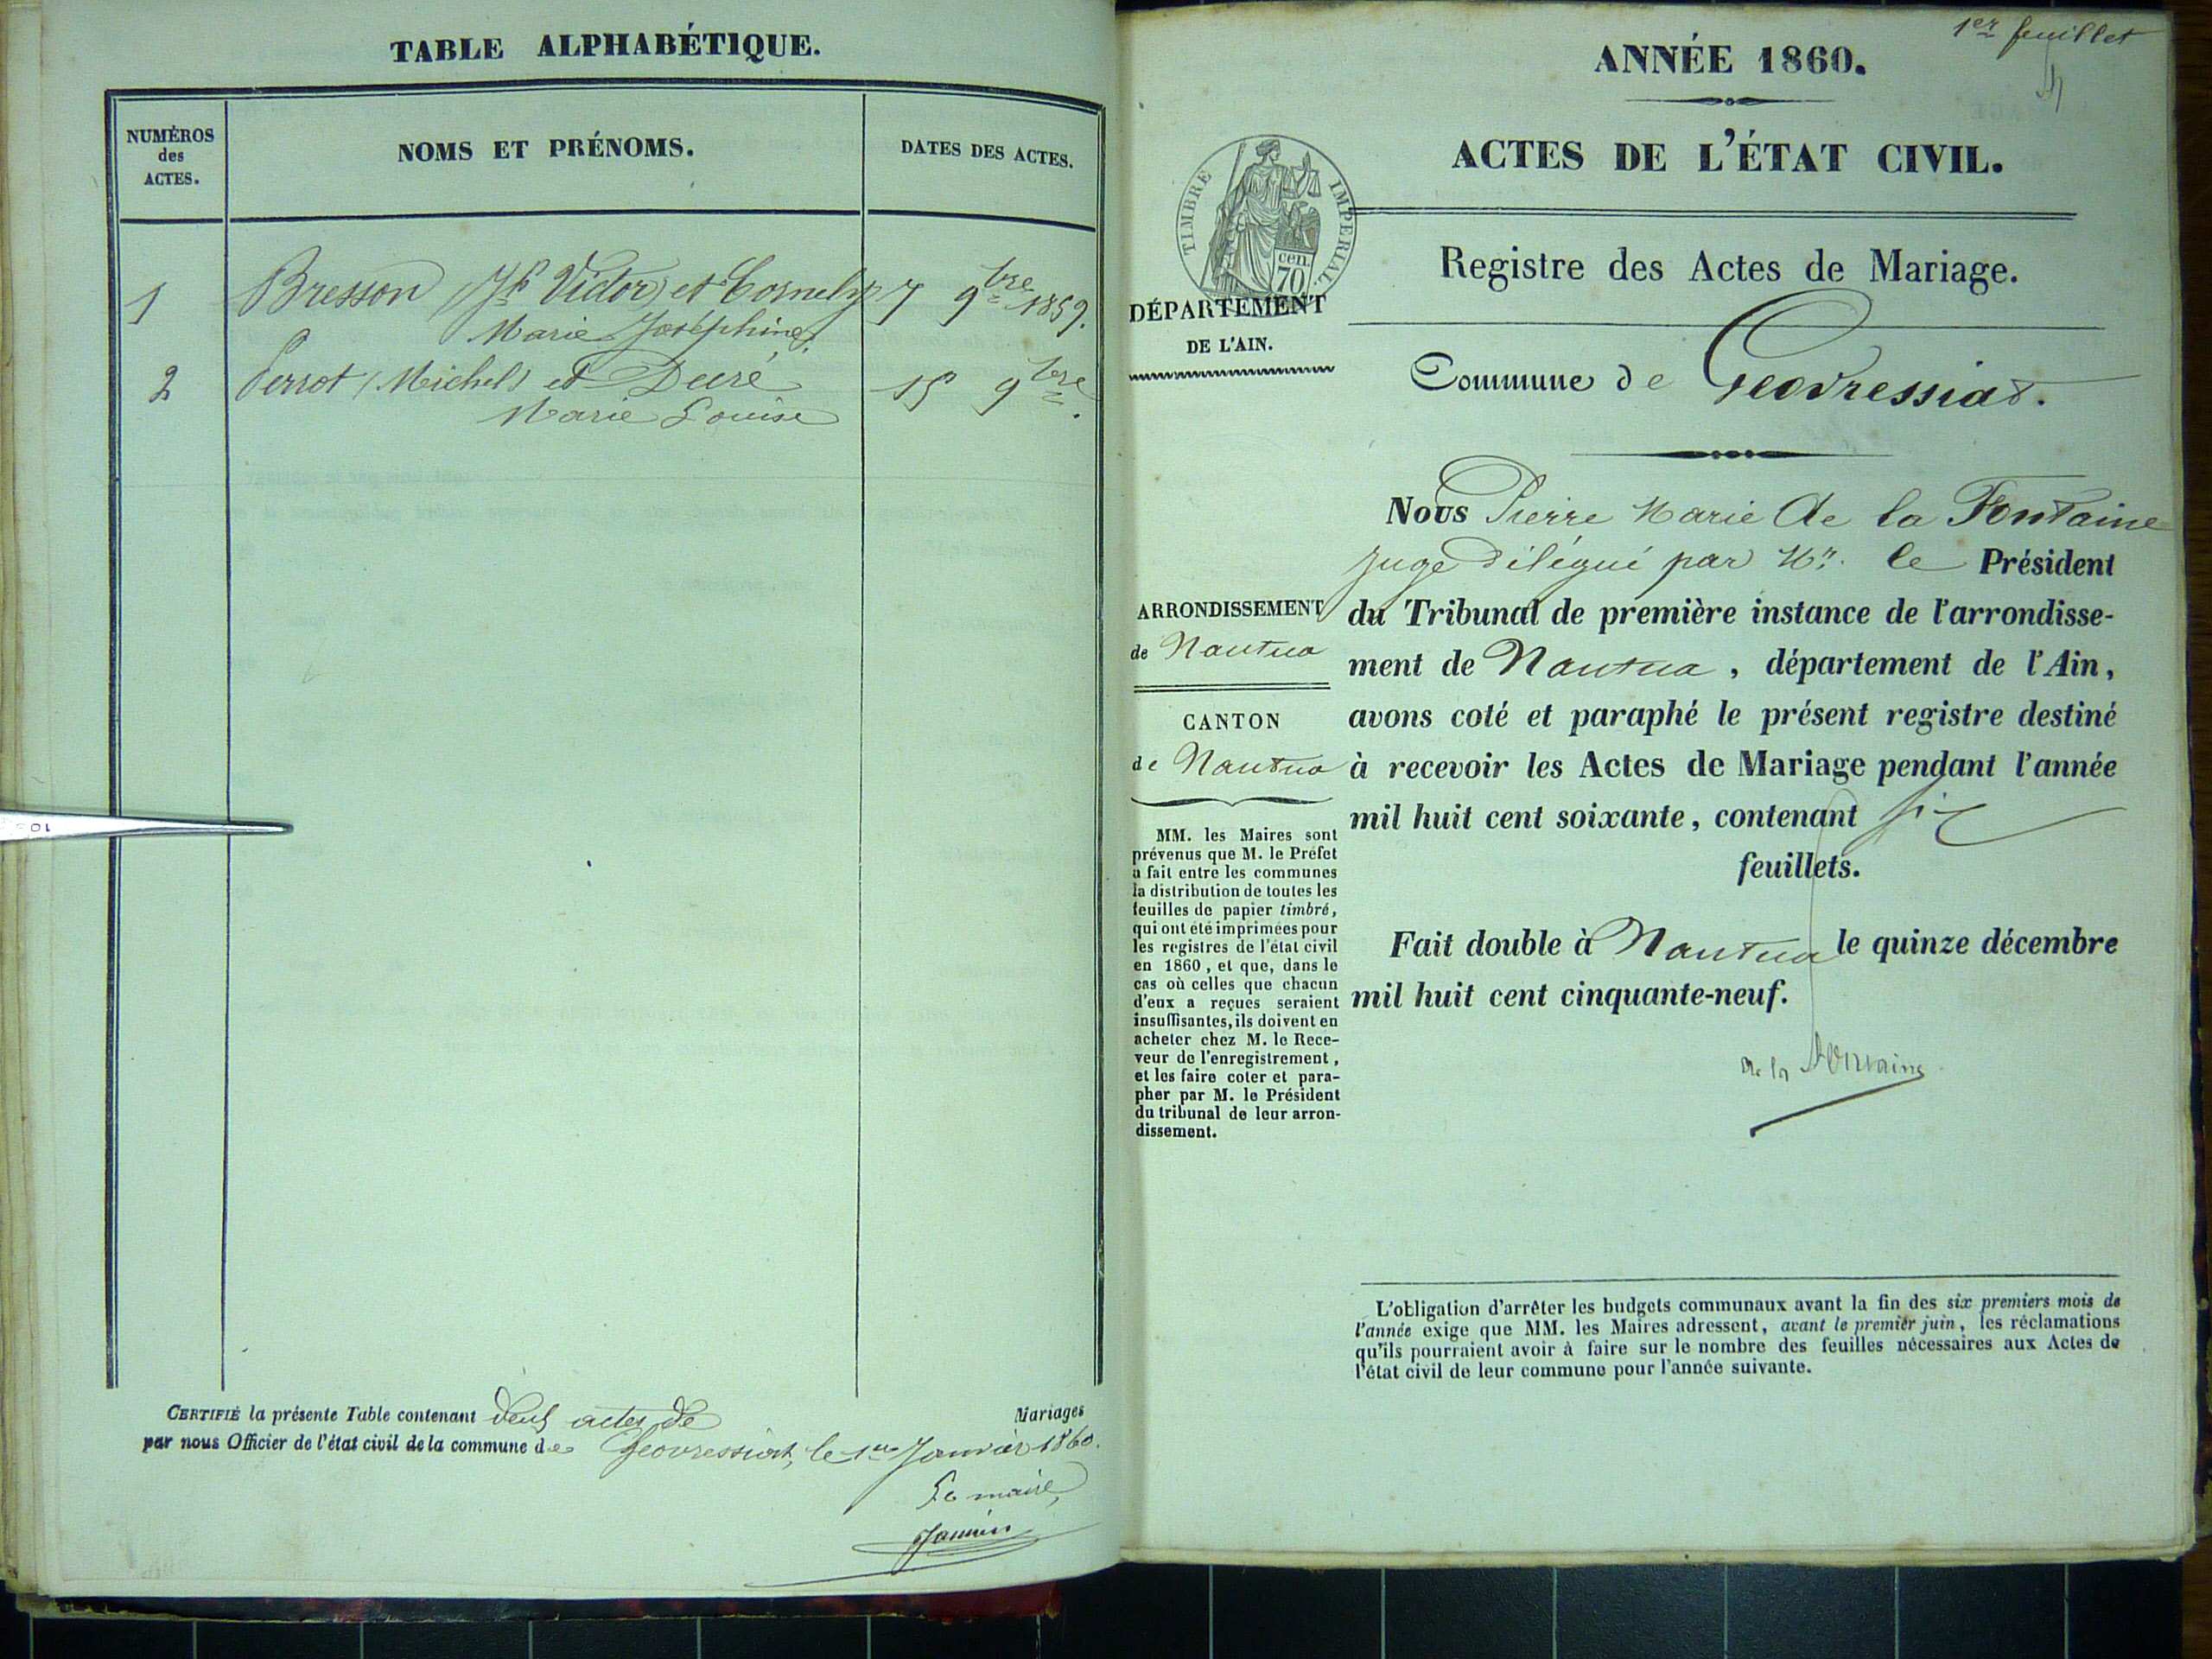 TABLE ALPHABÉTIQUE.
NUMÉROS
des
ACTES.
NOMS ET PRÉNOMS.
DATES DES ACTES.
1 Bresson (Jh Victor) et Cornely 7 9bre 1859.
Marie Joséphine.
2 Perrot (Michel) et Ducré 15 9bre.
Marie Louise
CERTIFIÉ la présente Table contenant deux actes de Mariages
par nous Officier de l'état civil de la commune de Geovressiat, le 1er Janvier 1860.
Le maire,
1er feuillet
ANNÉE 1860.
ACTES DE L'ÉTAT CIVIL.
TIMBRE IMPERIAL
cen.
70
Registre des Actes de Mariage.
DÉPARTEMENT
DE L'AIN.
Commune de Geovressiat.
Nous Pierre Marie De la Fontaine
juge délégué par Mr. le Président
du Tribunal de première instance de l'arrondisse-
ment de Nantua, département de l'Ain,
avons coté et paraphé le présent registre destiné
à recevoir les Actes de Mariage pendant l'année
mil huit cent soixante, contenant six
feuillets.
Fait double à Nantua le quinze décembre
mil huit cent cinquante-neuf.
De la Fontaine
ARRONDISSEMENT
de Nantua
CANTON
de Nantua
MM. les Maires sont
prévenus que M. le Préfet
a fait entre les communes
la distribution de toutes les
feuilles de papier timbré,
qui ont été imprimées pour
les registres de l'état civil
en 1860, et que, dans le
cas où celles que chacun
d'eux a reçues seraient
insuffisantes, ils doivent en
acheter chez M. le Rece-
veur de l'enregistrement,
et les faire coter et para-
pher par M. le Président
du tribunal de leur arron-
dissement.
L'obligation d'arrêter les budgets communaux avant la fin des six premiers mois de
l'année exige que MM. les Maires adressent, avant le premier juin, les réclamations
qu'ils pourraient avoir à faire sur le nombre des feuilles nécessaires aux Actes de
l'état civil de leur commune pour l'année suivante.